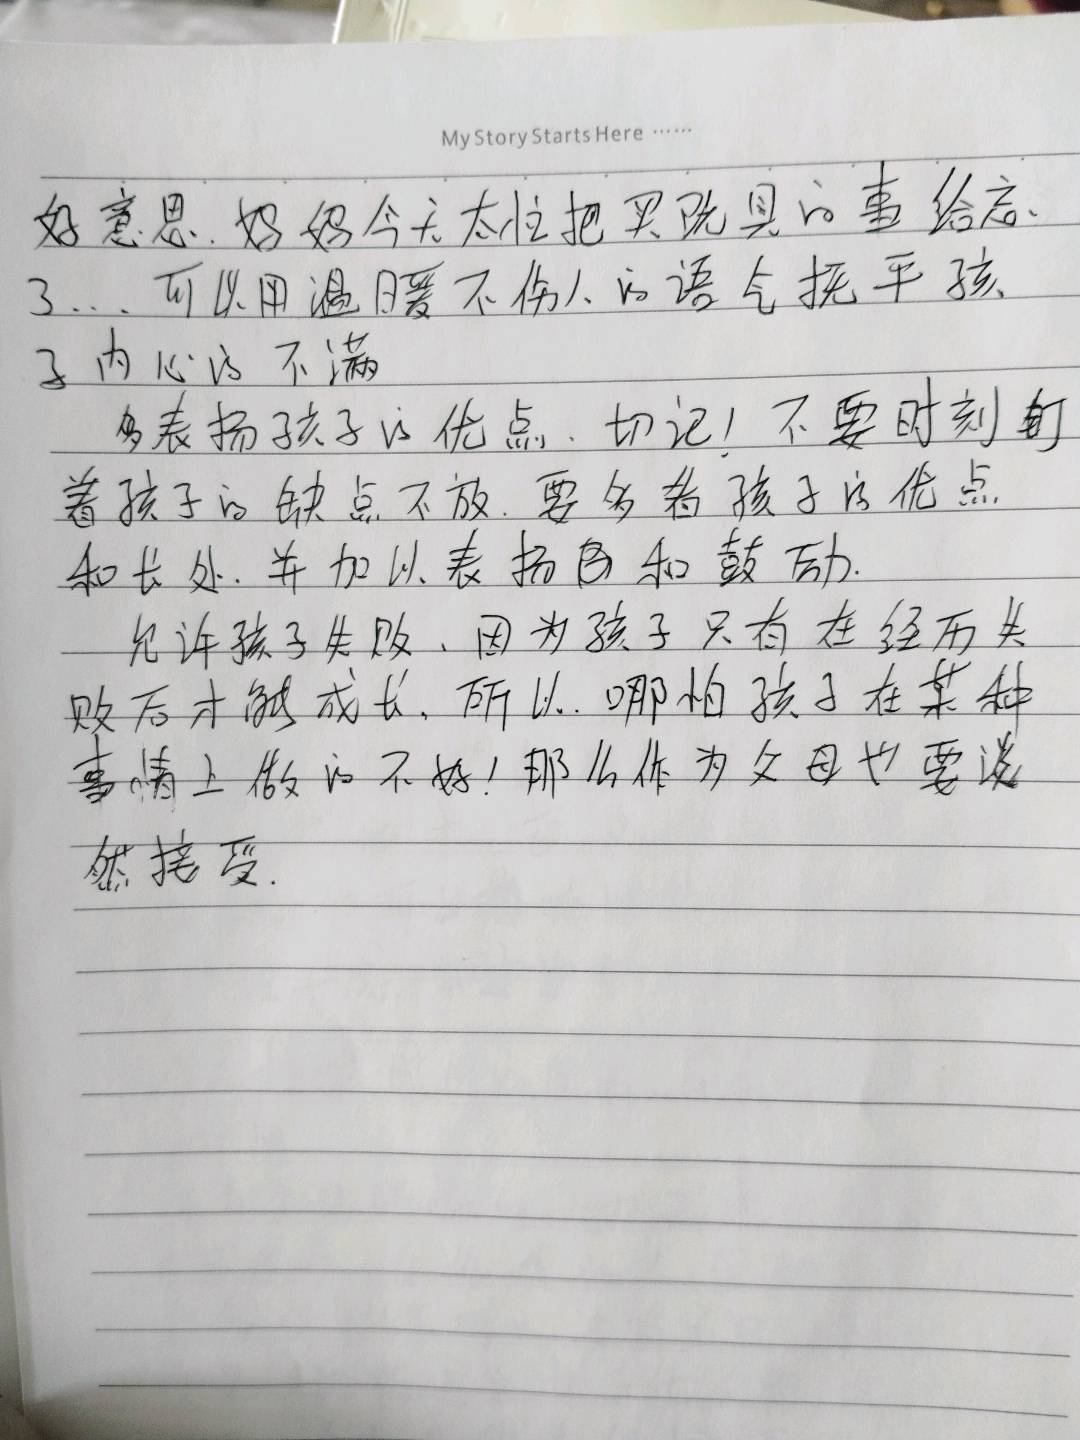 My Story Starts Here ……
好意思.妈妈今天太忙把买玩具的事给忘.
了....可以用温暖不伤人的语气抚平孩
子内心的不满
多表扬孩子的优点.切记!不要时刻盯
着孩子的缺点不放.要多看孩子的优点
和长处.并加以表扬和鼓励.
允许孩子失败、因为孩子只有在经历失
败后才能成长、所以.哪怕孩子在某种
事情上做的不好!那么作为父母也要淡
然接受.